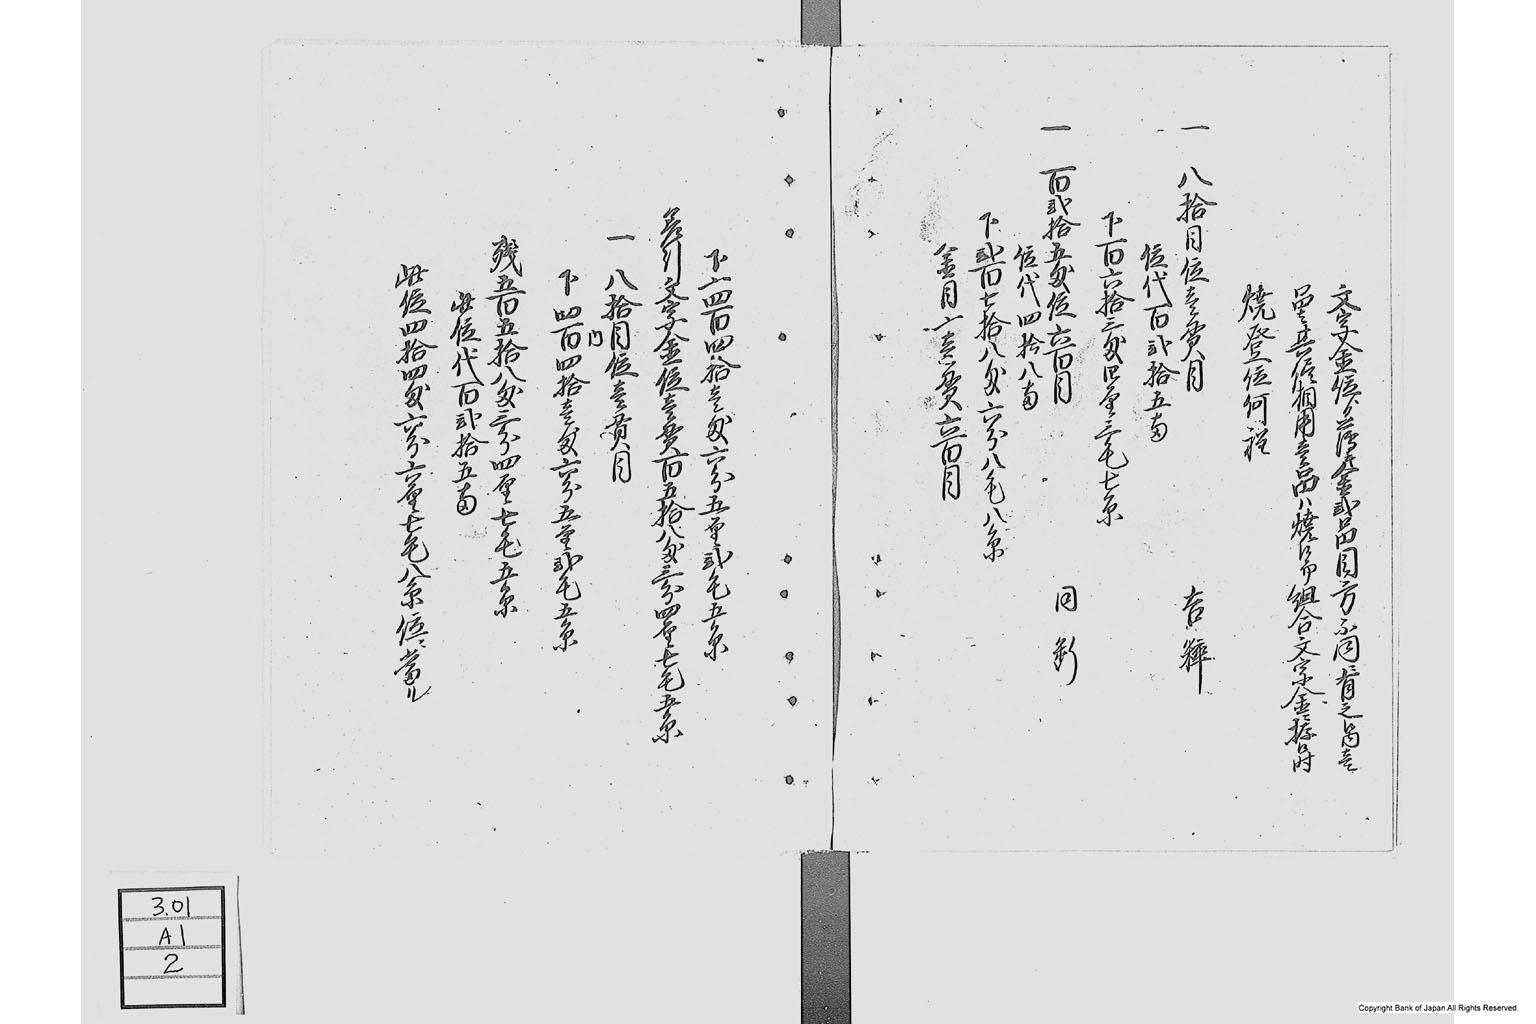 文字金位ゟ薄金弐品目方不同有之局壱
品其位相用壱品ハ焼吹組合文字金拵候時
焼登位何程
一 八拾目位壱貫目 古鏵
位代百弐拾五両
下百六拾三匁四厘三毛七糸
一 百弐拾五匁位六百目 同釿
位代四拾八両
下弐百七拾八匁六分八毛八糸
金目〆壱貫六百目
下〆四百四拾壱匁六分五厘弐毛五糸
差引文字金位壱貫百五拾八匁三分四厘七毛五糸
一 八拾目位壱貫目
内
下四百四拾壱匁六分五厘弐毛五糸
残五百五拾八匁三分四厘七毛五糸
此位代百弐拾五両
此位四拾四匁六分六厘七毛八糸位ニ当ル
3.01
A1
2
Copyright Bank of Japan All Rights Reserved.